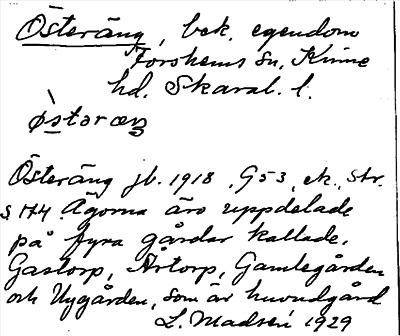 Österäng, bek. egendom
Forshems sn, Kinne
hd. Skarab. l.
østəræŋ
Österäng jb. 1918, G53, ek., str.
s 174 Ägorna äro uppdelade
på fyra gårdar kallade,
Gastorp, Artorp, Gamlegården
och Nygården, som är huvudgård
L. Madsén 1929